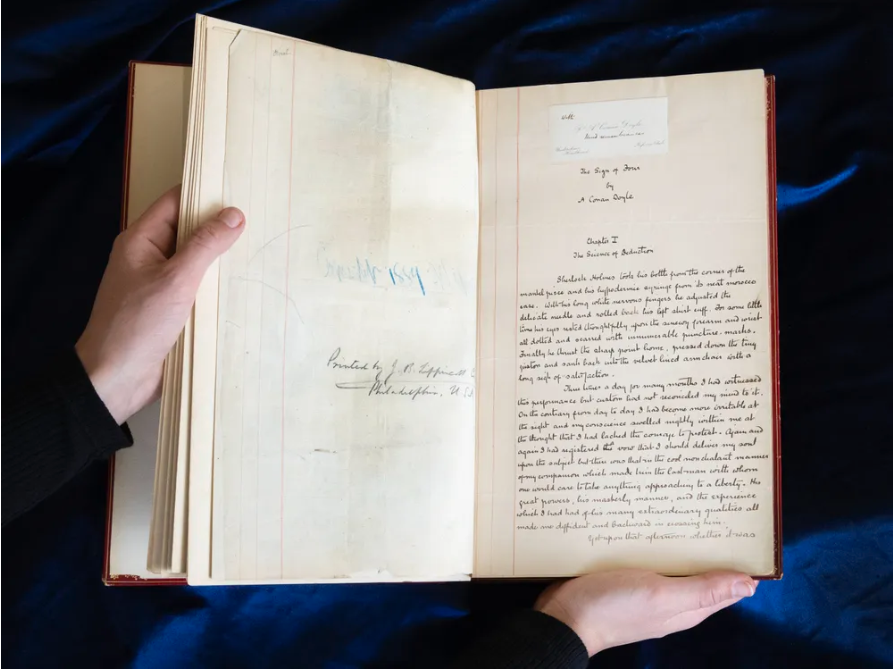 Printed by J. B. Lippincott
Philadelphia, U.S.
With
A Conan Doyle
The Sign of Four
by
A Conan Doyle
Chapter I
The Science of Deduction
Sherlock Holmes took his bottle from the corner of the
mantel piece and his hypodermic syringe from its neat morocco
case. With his long white nervous fingers he adjusted the
delicate needle and rolled back his left shirt cuff. For some little
time his eyes rested thoughtfully upon the sinewy forearm and wrist
all dotted and scarred with innumerable puncture-marks.
Finally he thrust the sharp point home, pressed down the tiny
piston and sank back into the velvet lined arm chair with a
long sigh of satisfaction.
Three times a day for many months I had witnessed
this performance but custom had not reconciled my mind to it.
On the contrary from day to day I had become more irritable at
the sight and my conscience swelled nightly within me at
the thought that I had lacked the courage to protest. Again and
again I had registered the vow that I should deliver my soul
upon the subject but there was that in the cool nonchalant manner
of my companion which made him the last man with whom
one would care to take anything approaching to a liberty. His
great powers, his masterly manner, and the experience
which I had had of his many extraordinary qualities all
made me diffident and backward in crossing him.
Yet upon that afternoon whether it was